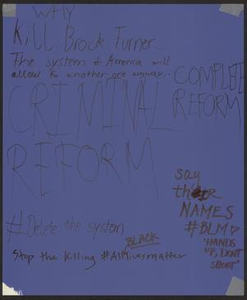 WHY
Kill Brock Turner
The systems of America will
allow for another one anyway..
COMPLETE
REFORM
CRIMINAL
REFORM
say
their
NAMES
#BLM ♡
"HANDS
UP, DONT
SHOOT"
# Delete the system
BLACK
Stop the killing #AllLivesmatter